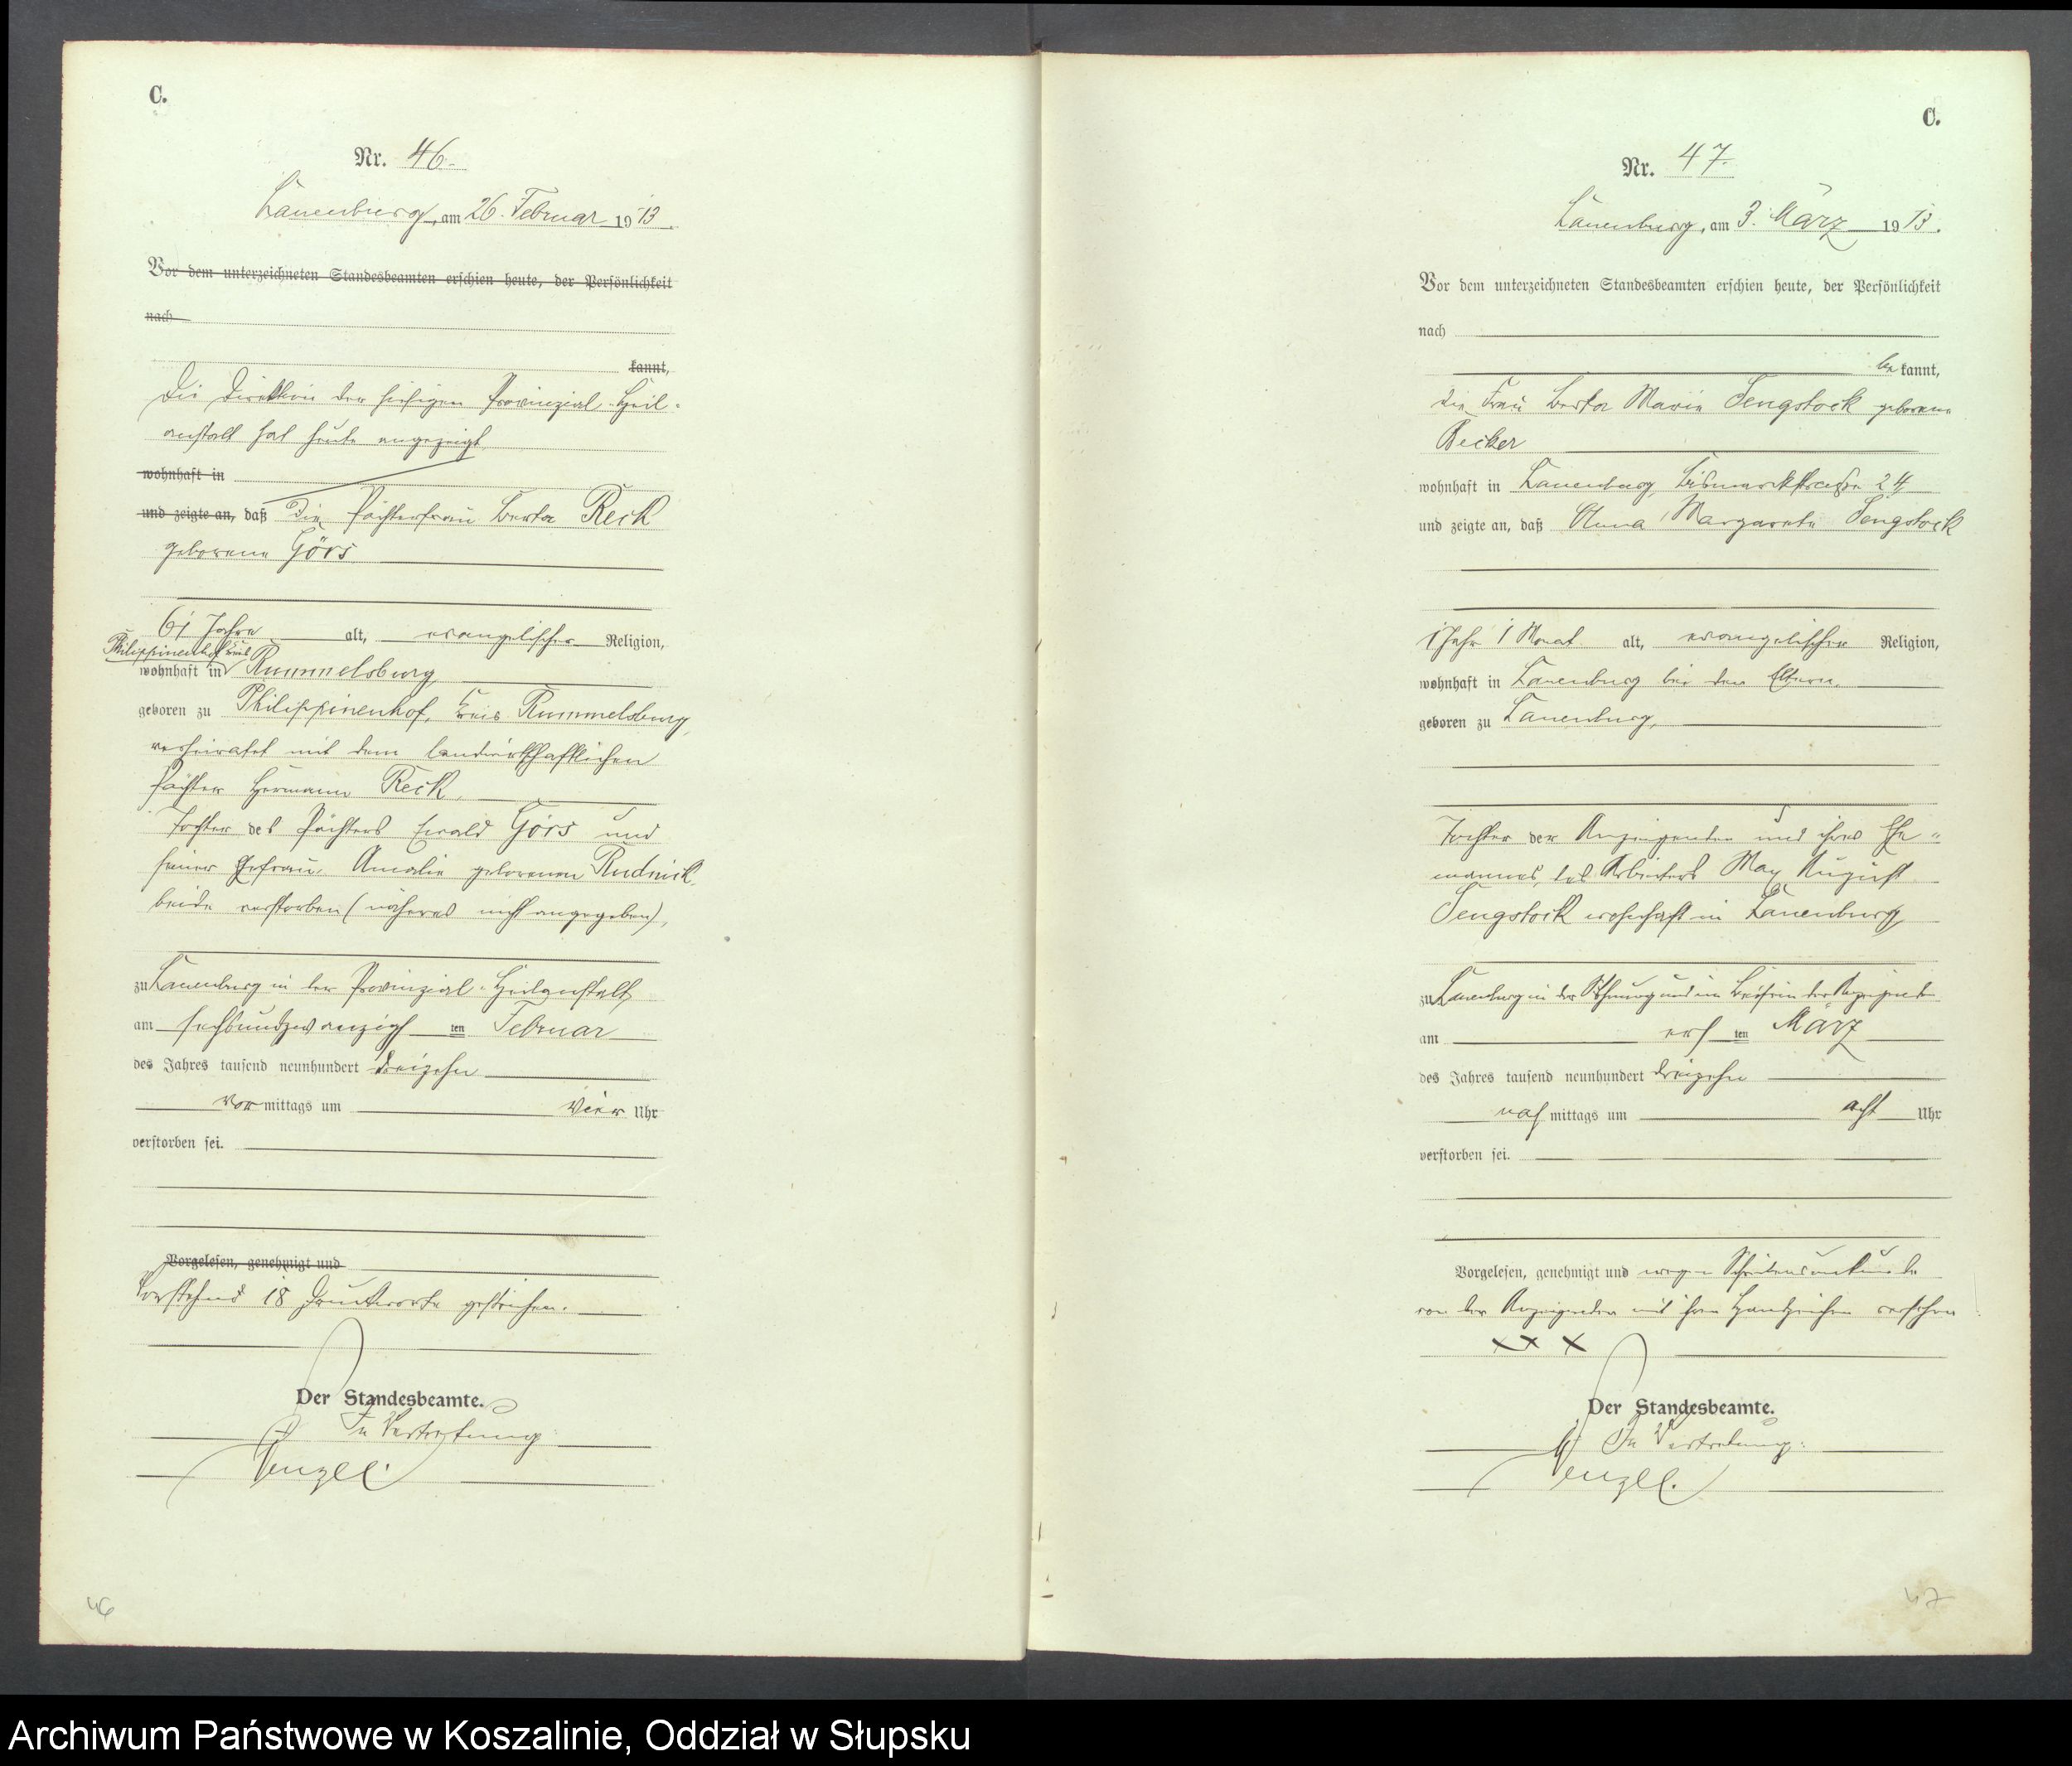 C.
Nr. 46.
Lauenburg, am 26. Februar 1913.
Vor dem unterzeichneten Standesbeamten erschien heute, der Persönlichkeit
nach
kannt,
Die Direktion der hiesigen Provinzial-Heil-
anstalt hat heute angezeigt
wohnhaft in
und zeigte an, daß die Pächterfrau Berta Reck
geborene Görs
61 Jahre alt, evangelischer Religion,
Philippinenhof Kreis
wohnhaft in Rummelsburg
geboren zu Philippinenhof, Kreis Rummelsburg,
verheiratet mit dem landwirtschaftlichen
Pächter Hermann Reck,
Tochter des Pächters Ewald Görs und
seiner Ehefrau Amalie geborenen Rudnick,
beide verstorben (näheres nicht angegeben),
zu Lauenburg in der Provinzial-Heilanstalt,
am sechsundzwanzigsten Februar
des Jahres tausend neunhundert dreizehn
vormittags um vier Uhr
verstorben sei.
Vorgelesen, genehmigt und
Vorstehend 18 Druckworte gestrichen.
Der Standesbeamte.
In Vertretung
Wenzel.
46
C.
Nr. 47.
Lauenburg, am 3. März 1913.
Vor dem unterzeichneten Standesbeamten erschien heute, der Persönlichkeit
nach
bekannt,
die Frau Berta Marie Sengstock geborene
Becker
wohnhaft in Lauenburg, Bismarckstraße 24
und zeigte an, daß Anna Margarete Sengstock
1 Jahr 1 Monat alt, evangelischer Religion,
wohnhaft in Lauenburg bei den Eltern
geboren zu Lauenburg,
Tochter der Anzeigenden und ihres Ehe-
mannes, des Arbeiters Max August
Sengstock wohnhaft in Lauenburg
zu Lauenburg in der Wohnung und im Beisein der Anzeigenden
am ersten März
des Jahres tausend neunhundert dreizehn
nachmittags um acht Uhr
verstorben sei.
Vorgelesen, genehmigt und wegen Schreibensunkunde
von der Anzeigenden mit ihren Handzeichen versehen
x x x
Der Standesbeamte.
In Vertretung:
Wenzel.
47
Archiwum Państwowe w Koszalinie, Oddział w Słupsku